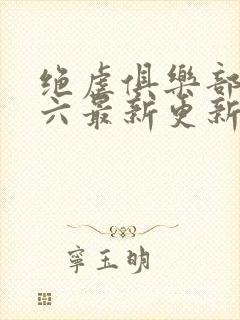 绝虐俱樂部
六最新更新
寧玉明